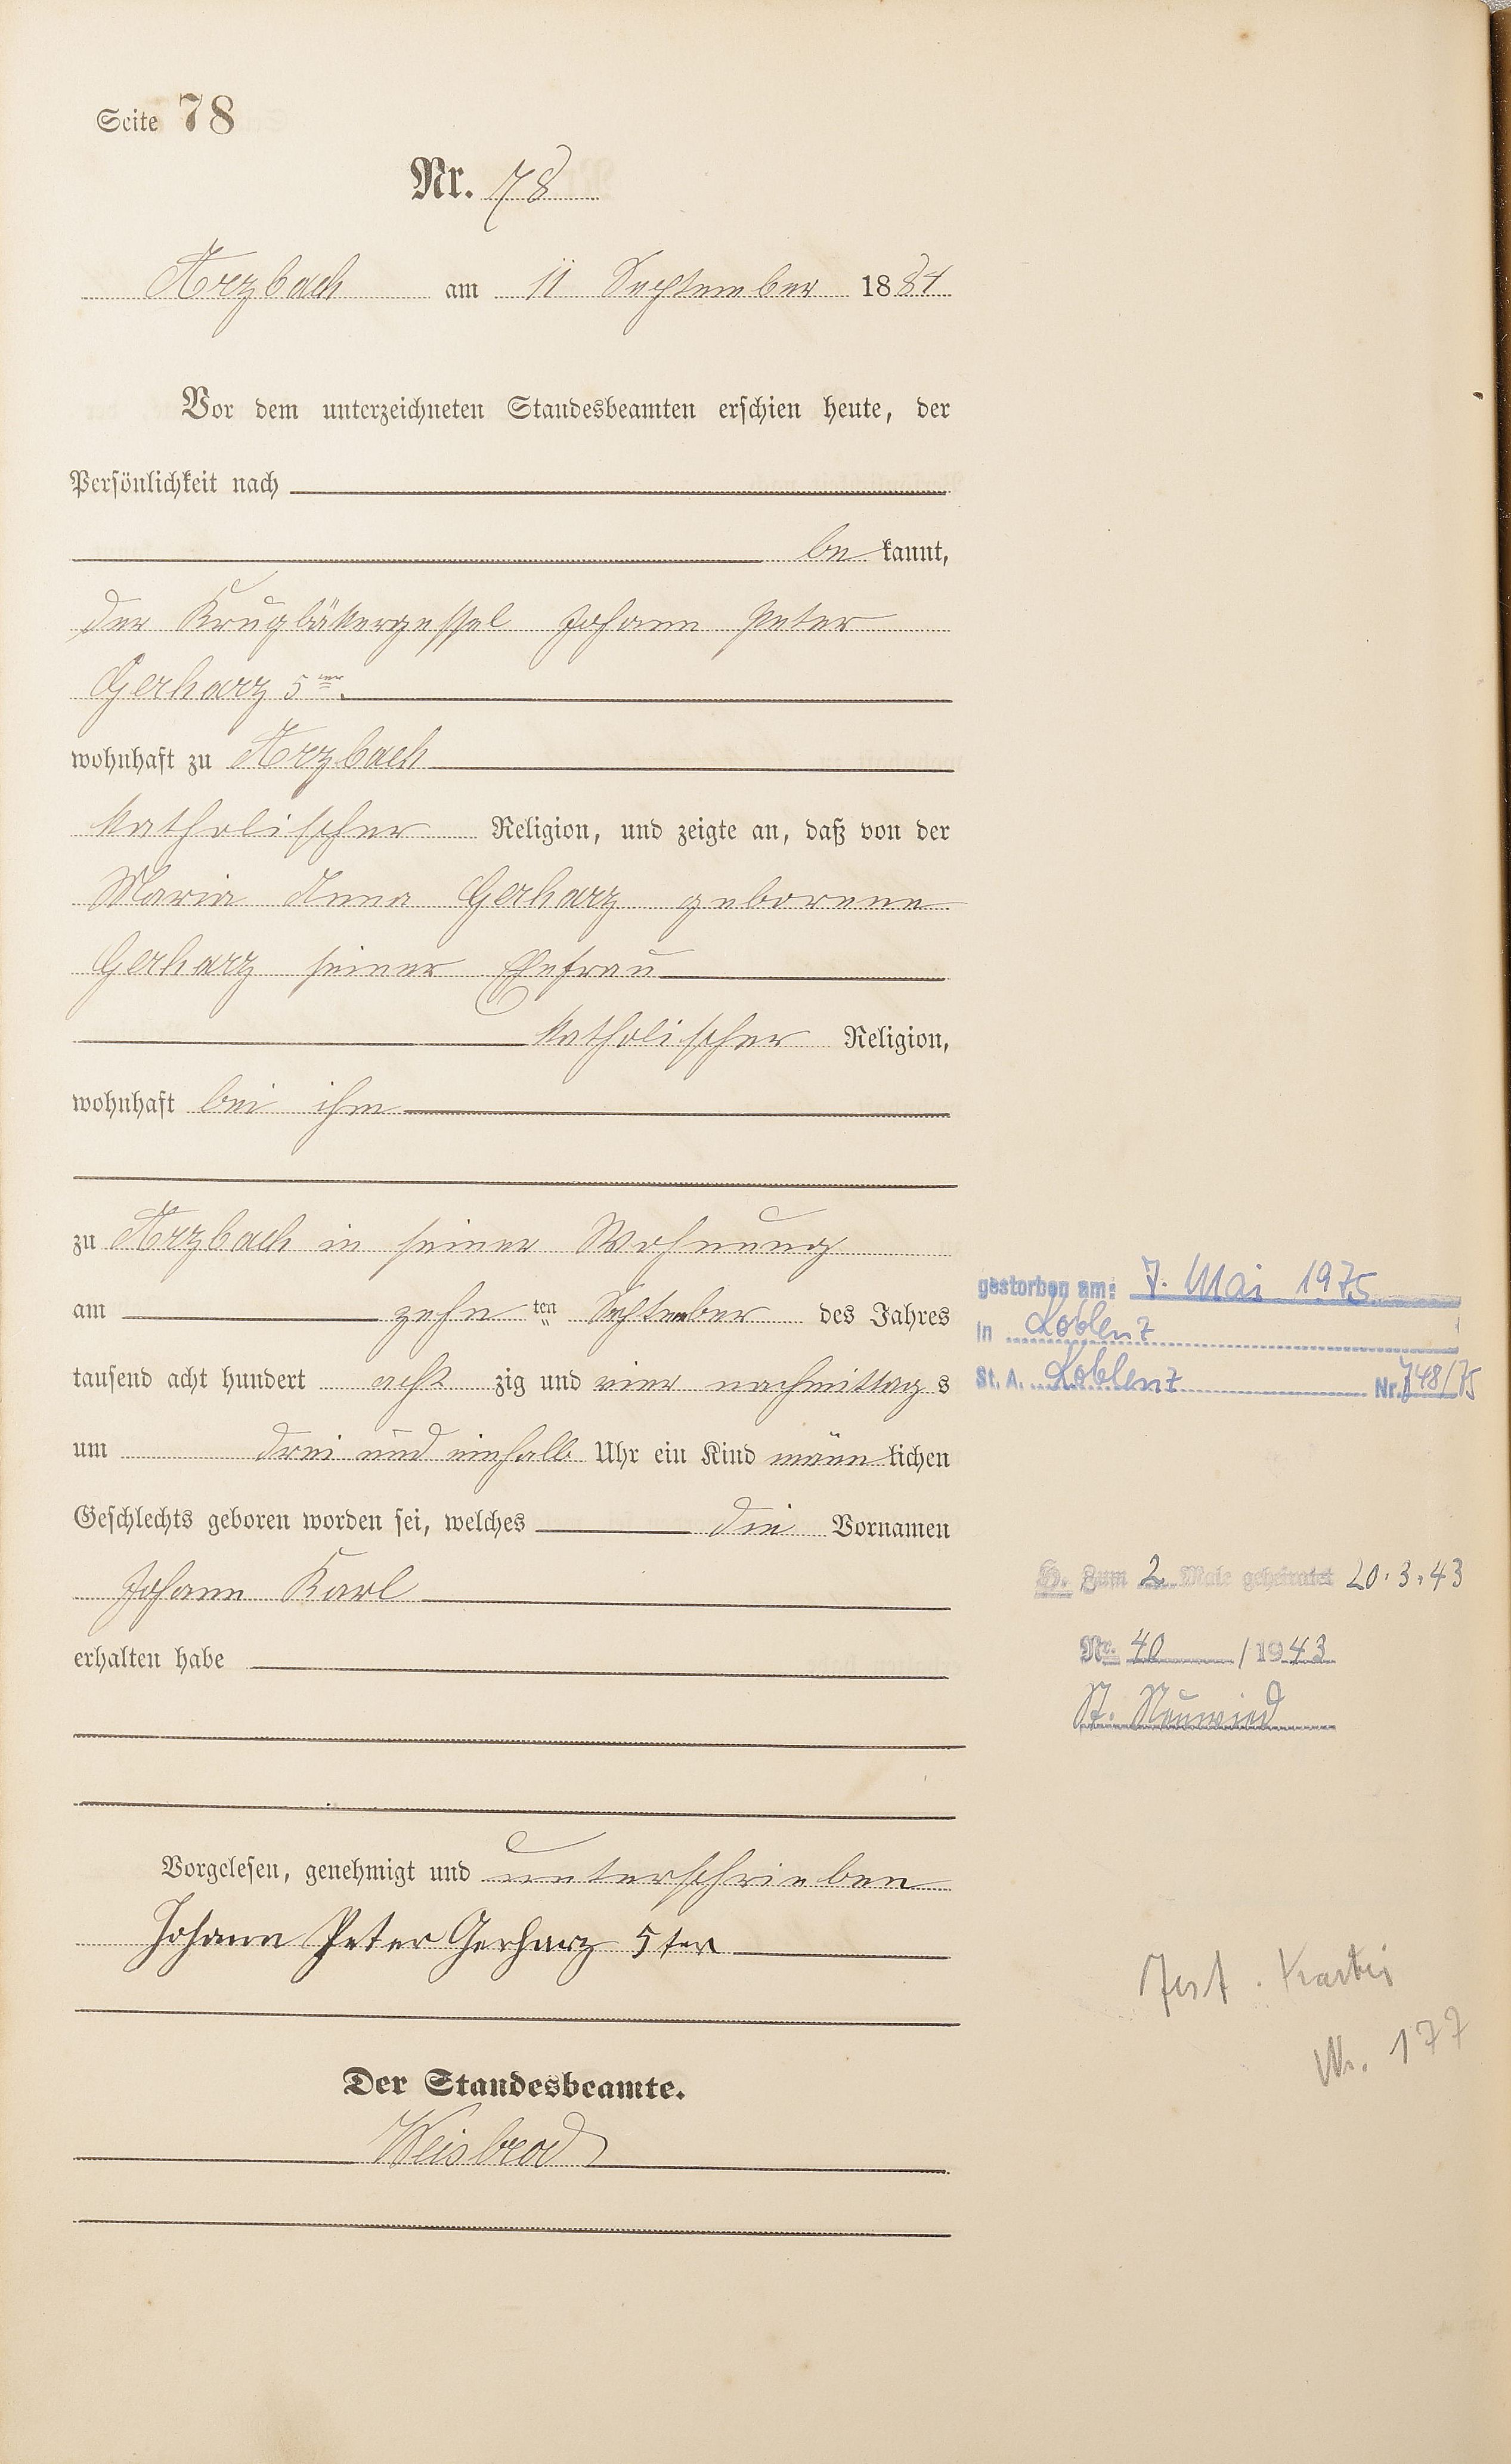 Seite 78
Nr. 78
Arzbach am 11 September 1884
Vor dem unterzeichneten Standesbeamten erschien heute, der
Persönlichkeit nach
be kannt,
der Krugbäkergessel Johann Peter
Gerharz 5ter.
wohnhaft zu Arzbach
katholischer Religion, und zeigte an, daß von der
Maria Anna Gerharz geborene
Gerharz seiner Ehefrau
katholischer Religion,
wohnhaft bei ihm
zu Arzbach in seiner Wohnung
am zehn ten September des Jahres
tausend acht hundert acht zig und vier nachmittag s
um drei und einhalb Uhr ein Kind männ lichen
Geschlechts geboren worden sei, welches die Vornamen
Johann Karl
erhalten habe
Vorgelesen, genehmigt und unterschrieben
Johann Peter Gerharz 5ter
Der Standesbeamte.
Weisbrod
gestorben am: 7. Mai 1975
in Koblenz
St. A. Koblenz Nr. 748/75
H. Zum 2. Male geheiratet 20.3.43
Nr. 40 / 1943
St. Neuwied
Test. Kartei
Nr. 177